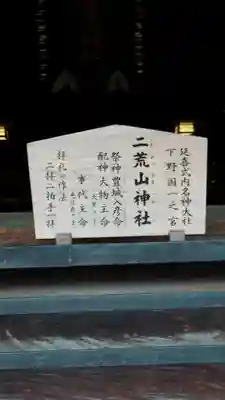 延喜式内名神大社
下野国一之宮
二荒山神社
祭神豊城入彦命
配神大物主命
事代主命
拝礼の作法
二拝二拍手一拝